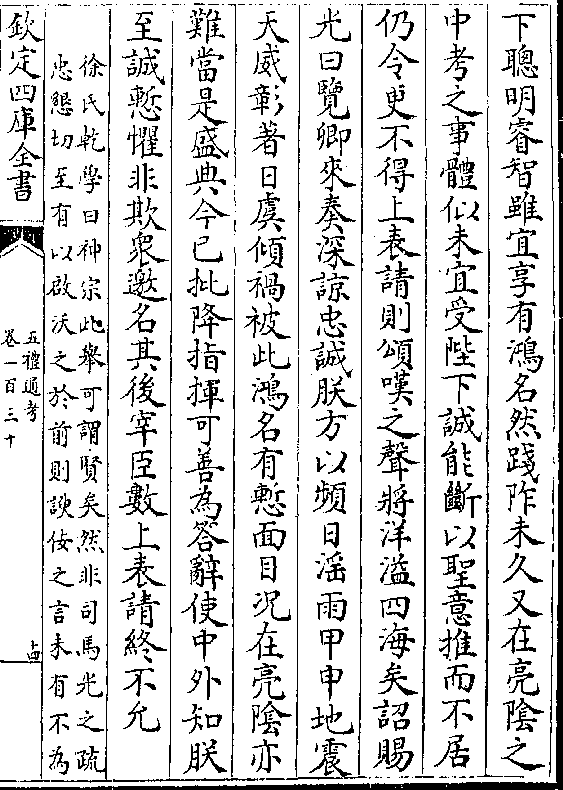 下聰明睿智雖宜享有鴻名然踐阼未久又在亮陰之
中考之事體似未宜受陛下誠能斷以聖意推而不居
仍令更不得上表請則頌嘆之聲將洋溢四海矣詔賜
光曰覽卿來奏深諒忠誠朕方以頻日滛雨甲申地震
天威彰著日虞傾禍被此鴻名有慙面目況在亮陰亦
難當是盛典今已批降指揮可善為答辭使中外知朕
至誠慙懼非欺衆邀名其後宰臣數上表請終不允
徐氏乾學曰神宗此舉可謂賢矣然非司馬光之疏
忠懇切至有以啟沃之於前則諛佞之言未有不為
欽定四庫全書
五禮通考
卷一百三十
古